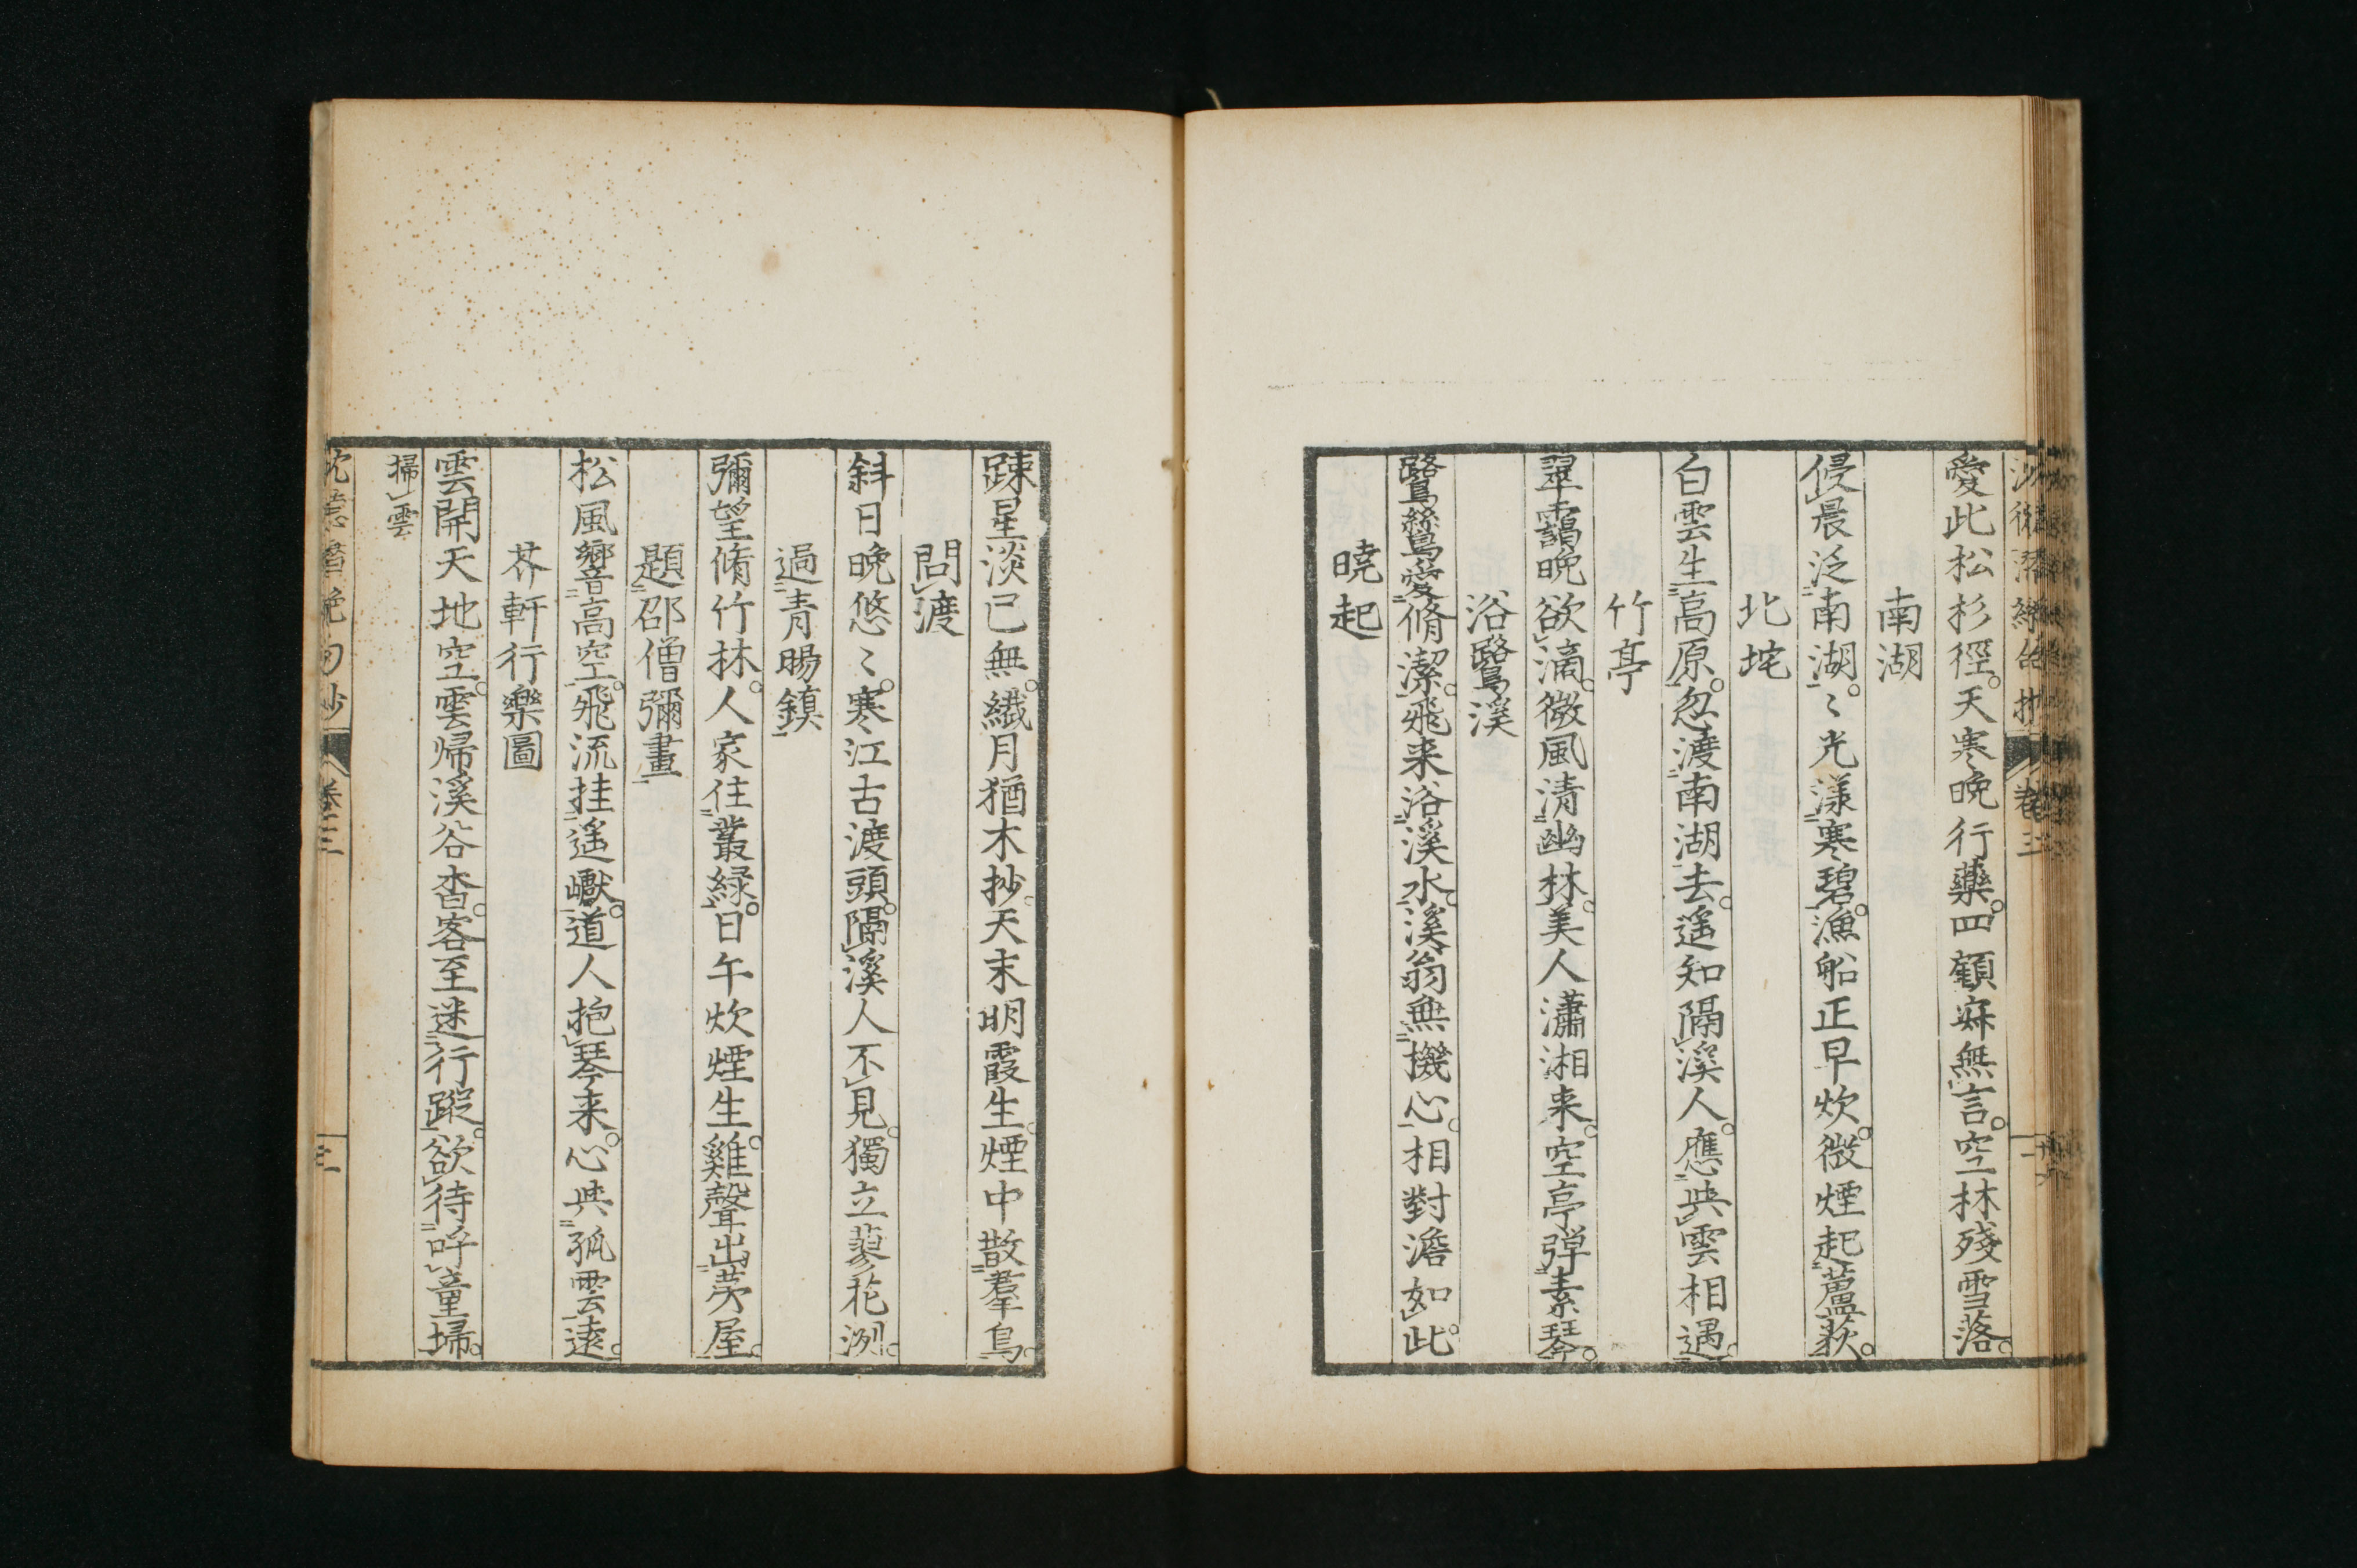 愛此松杉徑。天寒晚行藥。四顧㝛無言。空林殘雪落。
南湖
侵晨泛南湖。〻光漾寒碧。漁船正早炊。微煙起蘆荻。
北垞
白雲生高原。忽渡南湖去。遥知隔溪人。應與雲相遇。
竹亭
翠靄晚欲滴。微風清幽林。美人瀟湘来。空亭彈素琴。
浴鷺溪
鷺鷥愛脩潔。飛来浴溪水。溪翁無機心。相對澹如此。
曉起
踈星淡已無。纖月猶木抄。天末明霞生。煙中散羣鳥。
問渡
斜日晚悠〻。寒江古渡頭。隔溪人不見。獨立蓼花洌。
過青暘鎮
彌望脩竹林。人家住叢緑。日午炊煙生。雞聲出茆屋。
題邵僧彌畫
松風響高空。飛流挂遥巘。道人抱琴来。心與孤雲遠。
芥軒行樂圖
雲開天地空。雲帰溪谷杳。客至迷行蹤。欲待呼童埽。
掃雲
沈 絶句抄 卷三 三